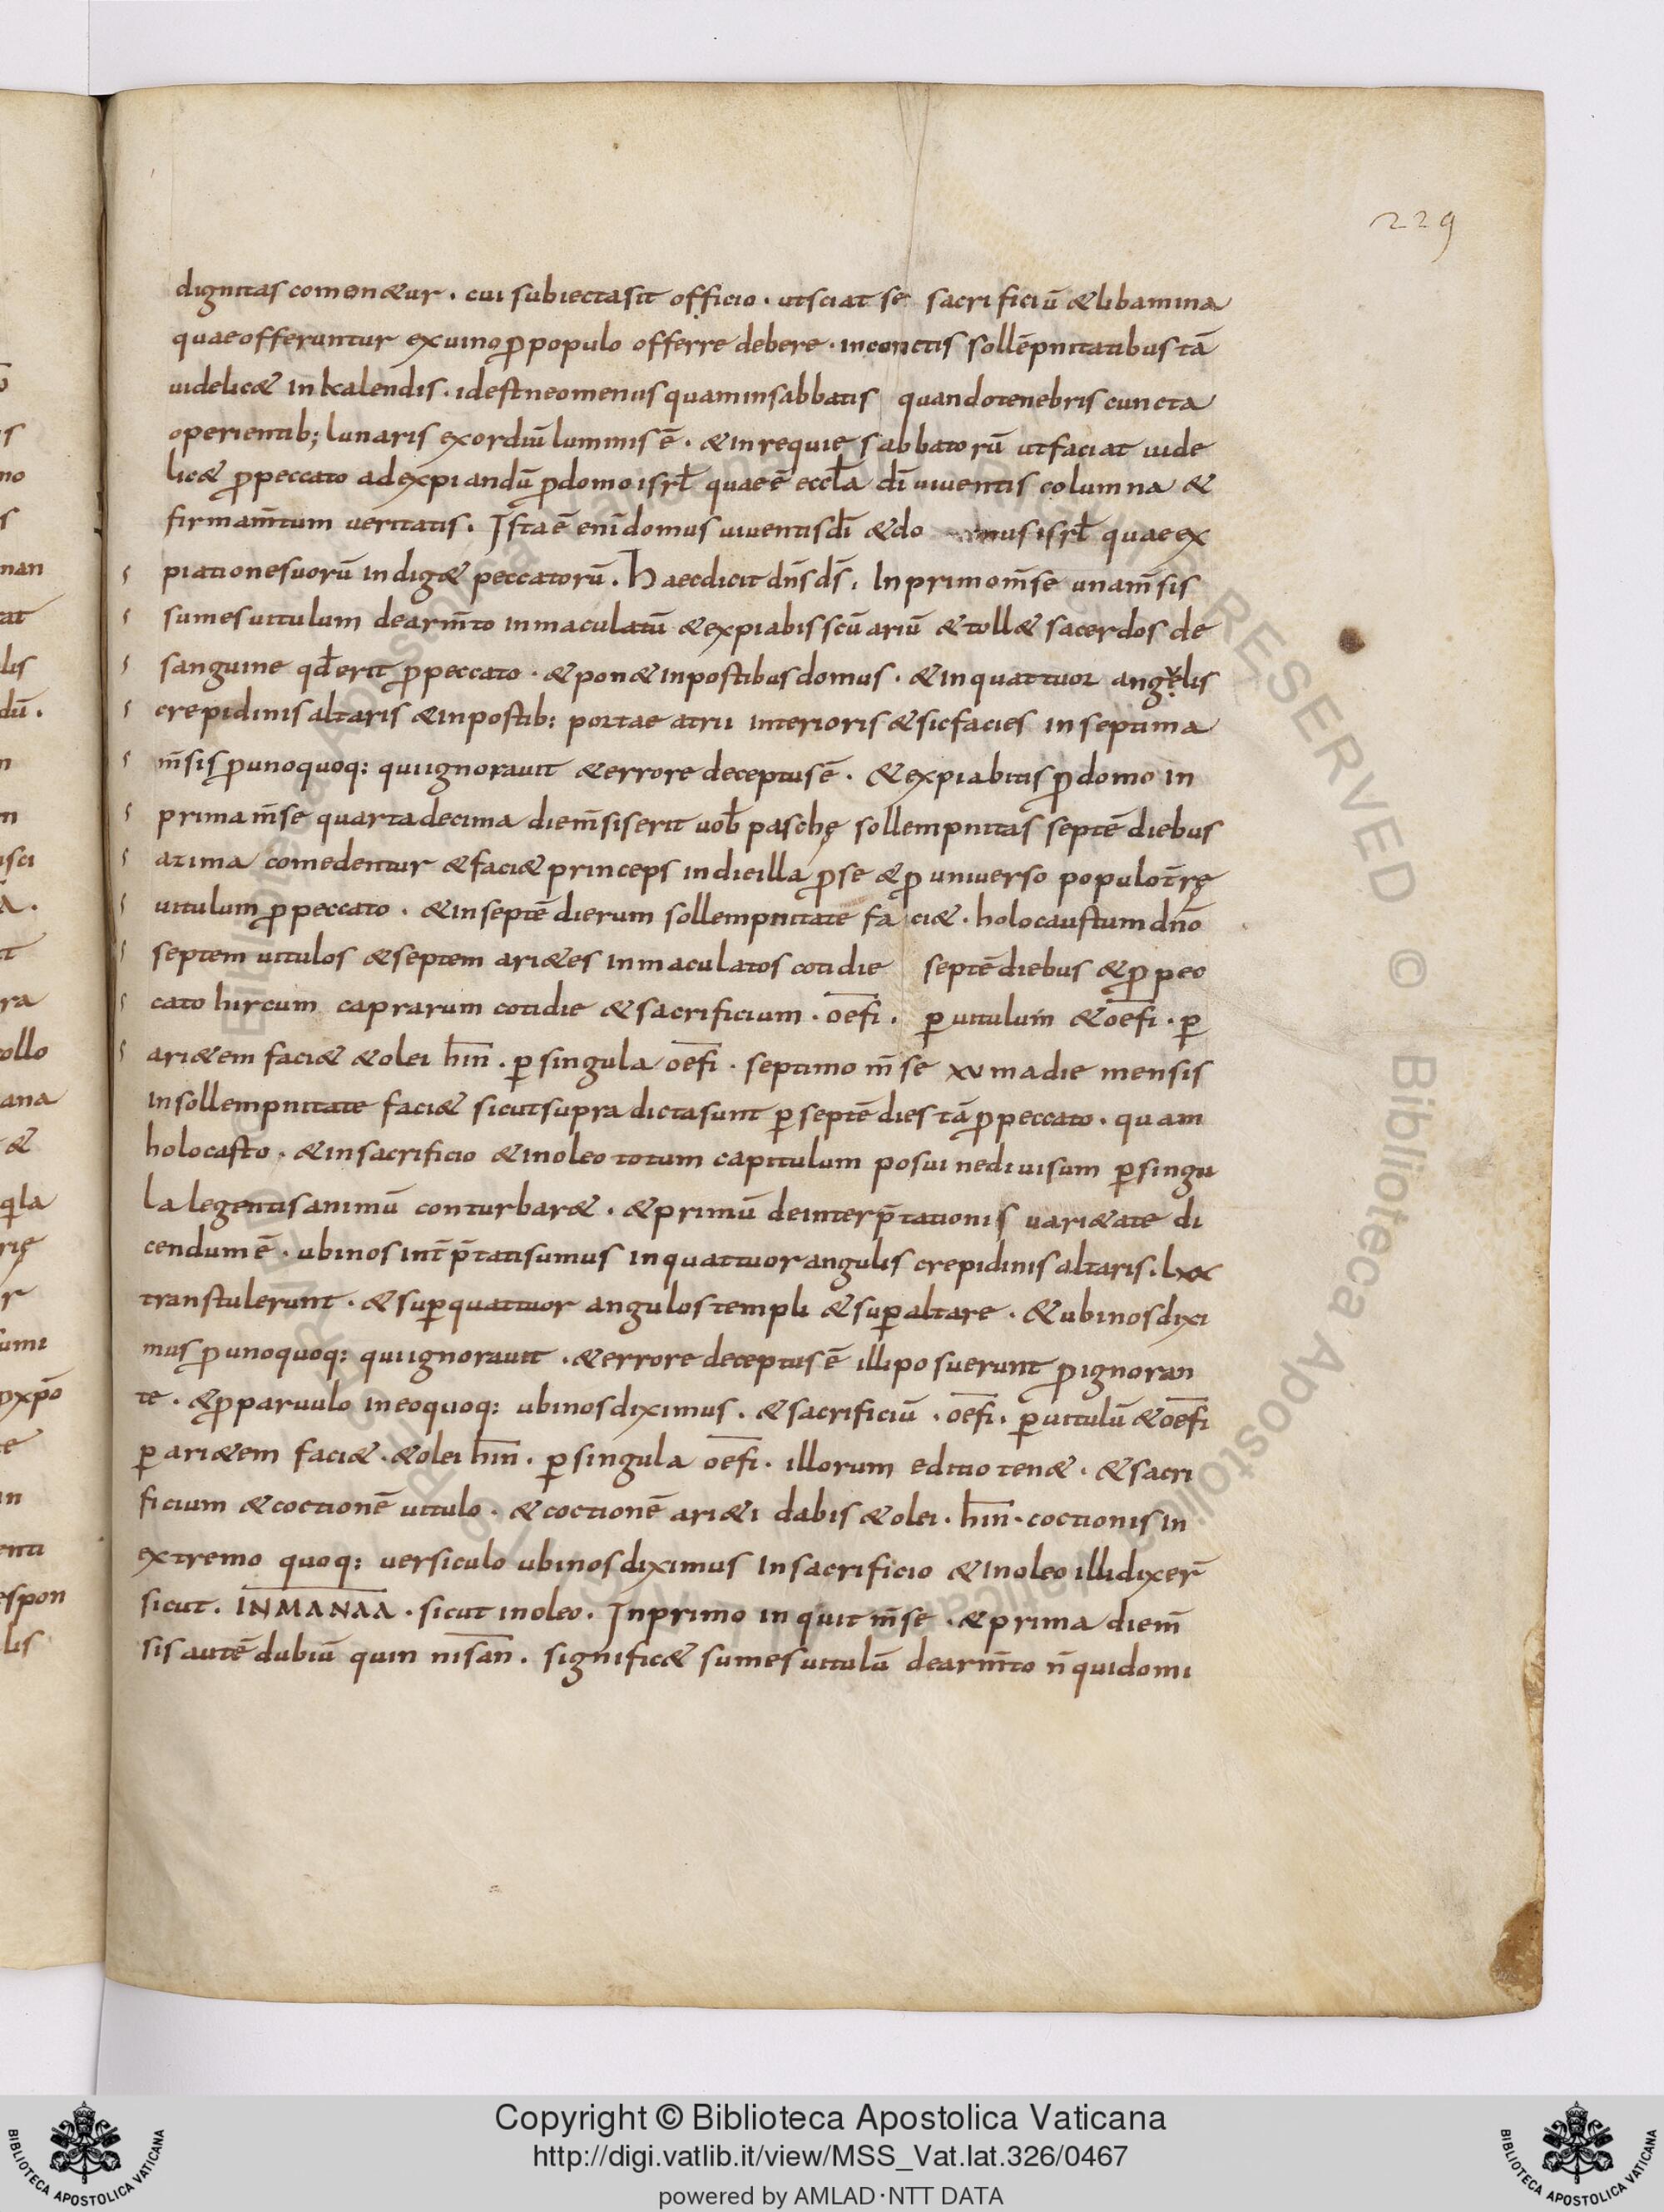 229
dignitas comen&ur · cui subiectasit officio · utsciat se sacrificiū &libamina
quaeofferuntur exuino ꝓpopulo offerre debere · inconctis sollēpnitatibus tā
uidelic& in kalendis · idestneomeniis quaminsabbatis quandotenebris cuncta
operientib; lunaris exordiū luminis ē · &inrequie sabbatorū utfaciat uide
lic& ꝓpeccato adexpiandū ꝓdomo isrl̄ quae ē eccl̄a dī uiuentis columna &
firmam̄tum ueritatis . Ista ē enī domus uiuentis dī &do mus isrl̄ quae ex
piationesuorū indig& peccatorū . Haecdicit dn̄s ds̄ . In primo m̄se una m̄sis
sumes uitulum dearm̄to inmaculatū &expiabis scūariū &toll& sacerdos de
sanguine qd̄erit ꝓpeccato · &pon& inpostibus domus · &inquattuor angelis
crepidinis altaris &inpostib: portae atrii interioris &sicfacies in septima
m̄sis ꝓunoquoq: quiignorauit &errore deceptus ē · &expiabitis ꝓdomo in
prima m̄se quartadecima die m̄siserit uob̄ paschę sollempnitas septē diebus
azima comedentur &faci& princeps indieilla ꝓse &ꝓ uniuerso populo t̄rę
uitulum ꝓpeccato · &inseptē dierum sollempnitate fa ci& · holocaustum dn̄o
septem uitulos &septem ari&es inmaculatos cotidie septē diebus &ꝓ pec
cato hircum caprarum cotidie &sacrificium · oēfi . ꝑ uitulum &oēfi · ꝑ
ari&em faci& &olei hīn . ꝑ singula oēfi · septimo m̄se xvma die mensis
insollempnitate faci& sicutsupra dictasunt ꝑ septē dies tā ꝓpeccato . quam
holocasto · &insacrificio &inoleo totum capitulum posui nediuisum ꝑsingu
la legentis animū conturbar& · &primū deinterp̄tationis uari&ate di
cendum ē · ubinos int̄p̄tatisumus inquattuor angulis crepidinis altaris . lxx
transtulerunt · &suꝑquattuor angulos templi &suꝑaltare · &ubinosdixi
mus ꝓunoquoq: quiignorauit · &errore deceptus ē illiposuerunt ꝓignoran
te · &ꝓparuulo ineoquoq: ubinosdiximus . &sacrificiū · oēfi . ꝑuitulū &oēfi
ꝑ ari&em faci& · &olei hīn . ꝑ singula oēfi · illorum editio ten& · &sacri
ficium &coctionē uitulo · &coctionē ari&i dabis &olei · hīn · coctionis in
extremo quoq: uersiculo ubinosdiximus insacrificio &inoleo illidixer̄
sicut . INMANAA · sicut inoleo . Inprimo inquit m̄se · &prima die m̄
sis autē dubiū quin nisan̄ . signific& sumes uitulū dearm̄to n̄ quidomi
Copyright © Biblioteca Apostolica Vaticana
http://digi.vatlib.it/view/MSS_Vat.lat.326/0467
powered by AMLAD·NTT DATA
BIBLIOTECA APOSTOLICA VATICANA
BIBLIOTECA APOSTOLICA VATICANA